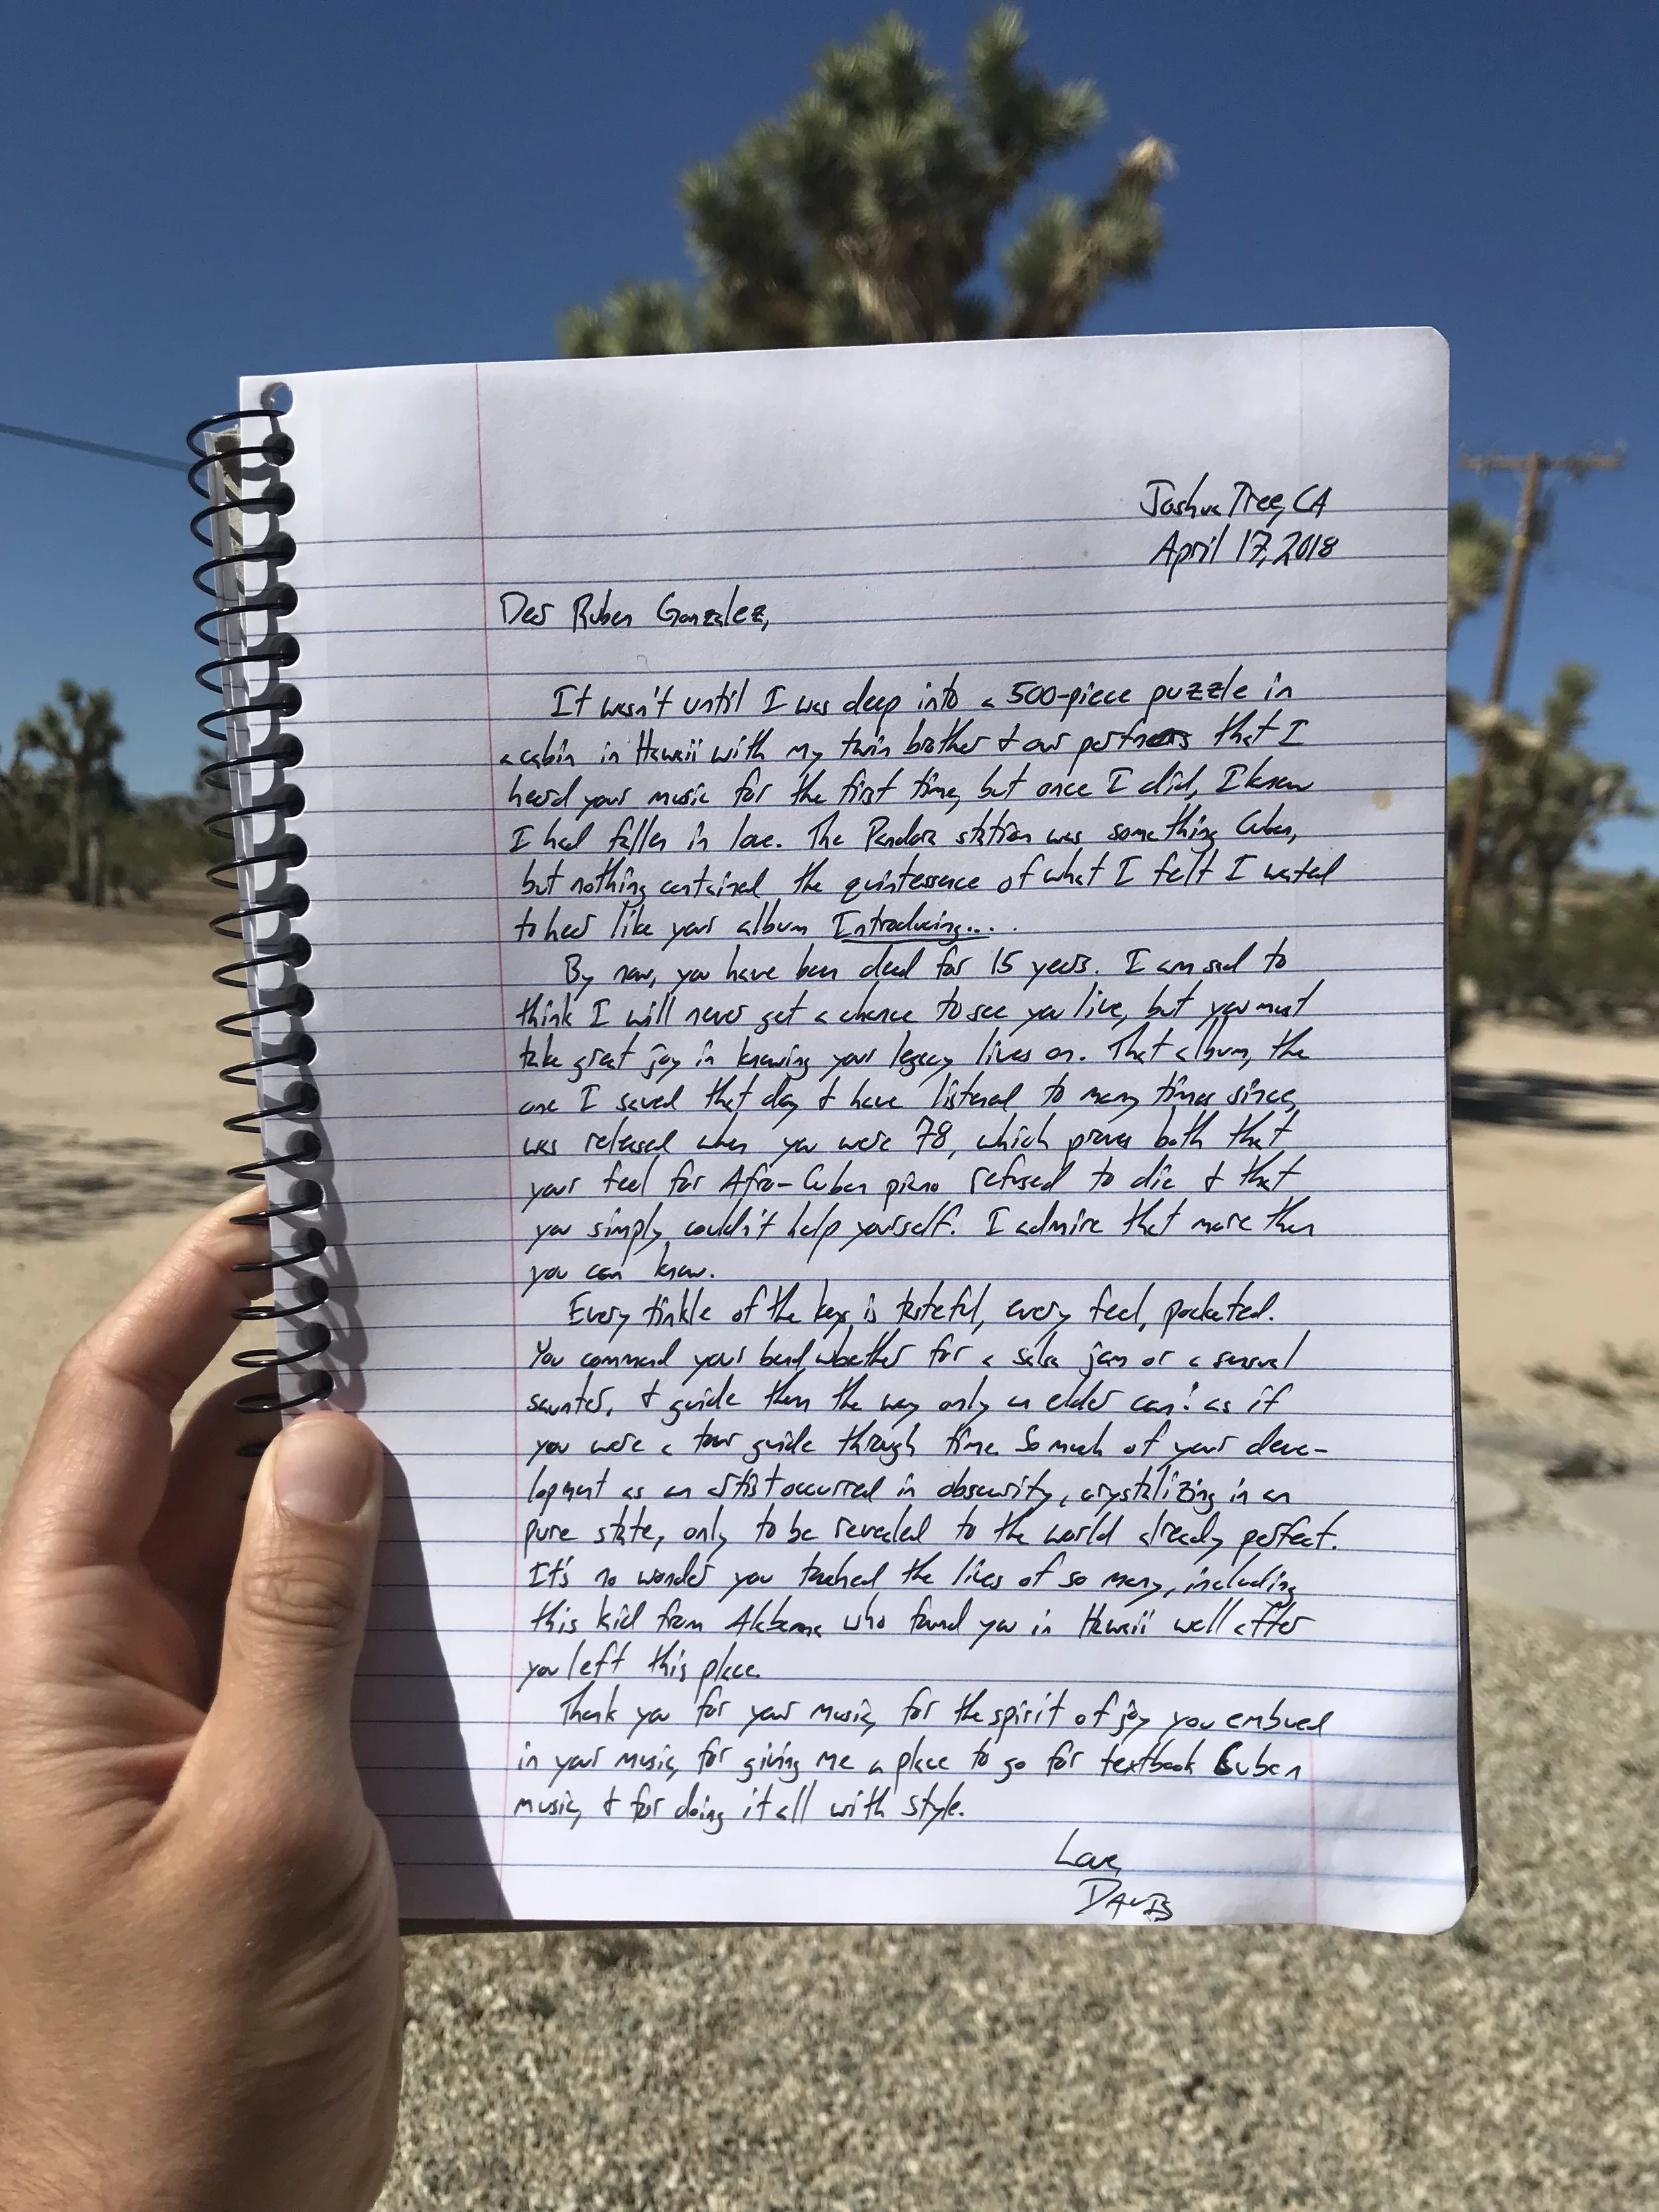 Joshua Tree, CA
April 17, 2018
Dear Ruben Gonzalez,
It wasn't until I was deep into a 500-piece puzzle in
a cabin in Hawaii with my twin brother & our partners that I
heard your music for the first time, but once I did, I knew
I had fallen in love. The Pandora station was something Cuban,
but nothing contained the quintessence of what I felt I wanted
to hear like your album Introducing....
By now, you have been dead for 15 years. I am sad to
think I will never get a chance to see you live, but you must
take great joy in knowing your legacy lives on. That album, the
one I saved that day & have listened to many times since,
was released when you were 78, which proves both that
your feel for Afro-Cuban piano refused to die & that
you simply couldn't help yourself. I admire that more than
you can know.
Every tinkle of the keys is tasteful, every feel, pocketed.
You command your band, whether for a salsa jam or a sensual
saunter, & guide them the way only an elder can: as if
you were a tour guide through time. So much of your deve-
lopment as an artist occurred in obscurity, crystalizing in an
pure state, only to be revealed to the world already perfect.
It's no wonder you touched the lives of so many, including
this kid from Alabama who found you in Hawaii well after
you left this place.
Thank you for your music, for the spirit of joy you embued
in your music, for giving me a place to go for textbook Cuban
music, & for doing it all with style.
Love,
DAVIS